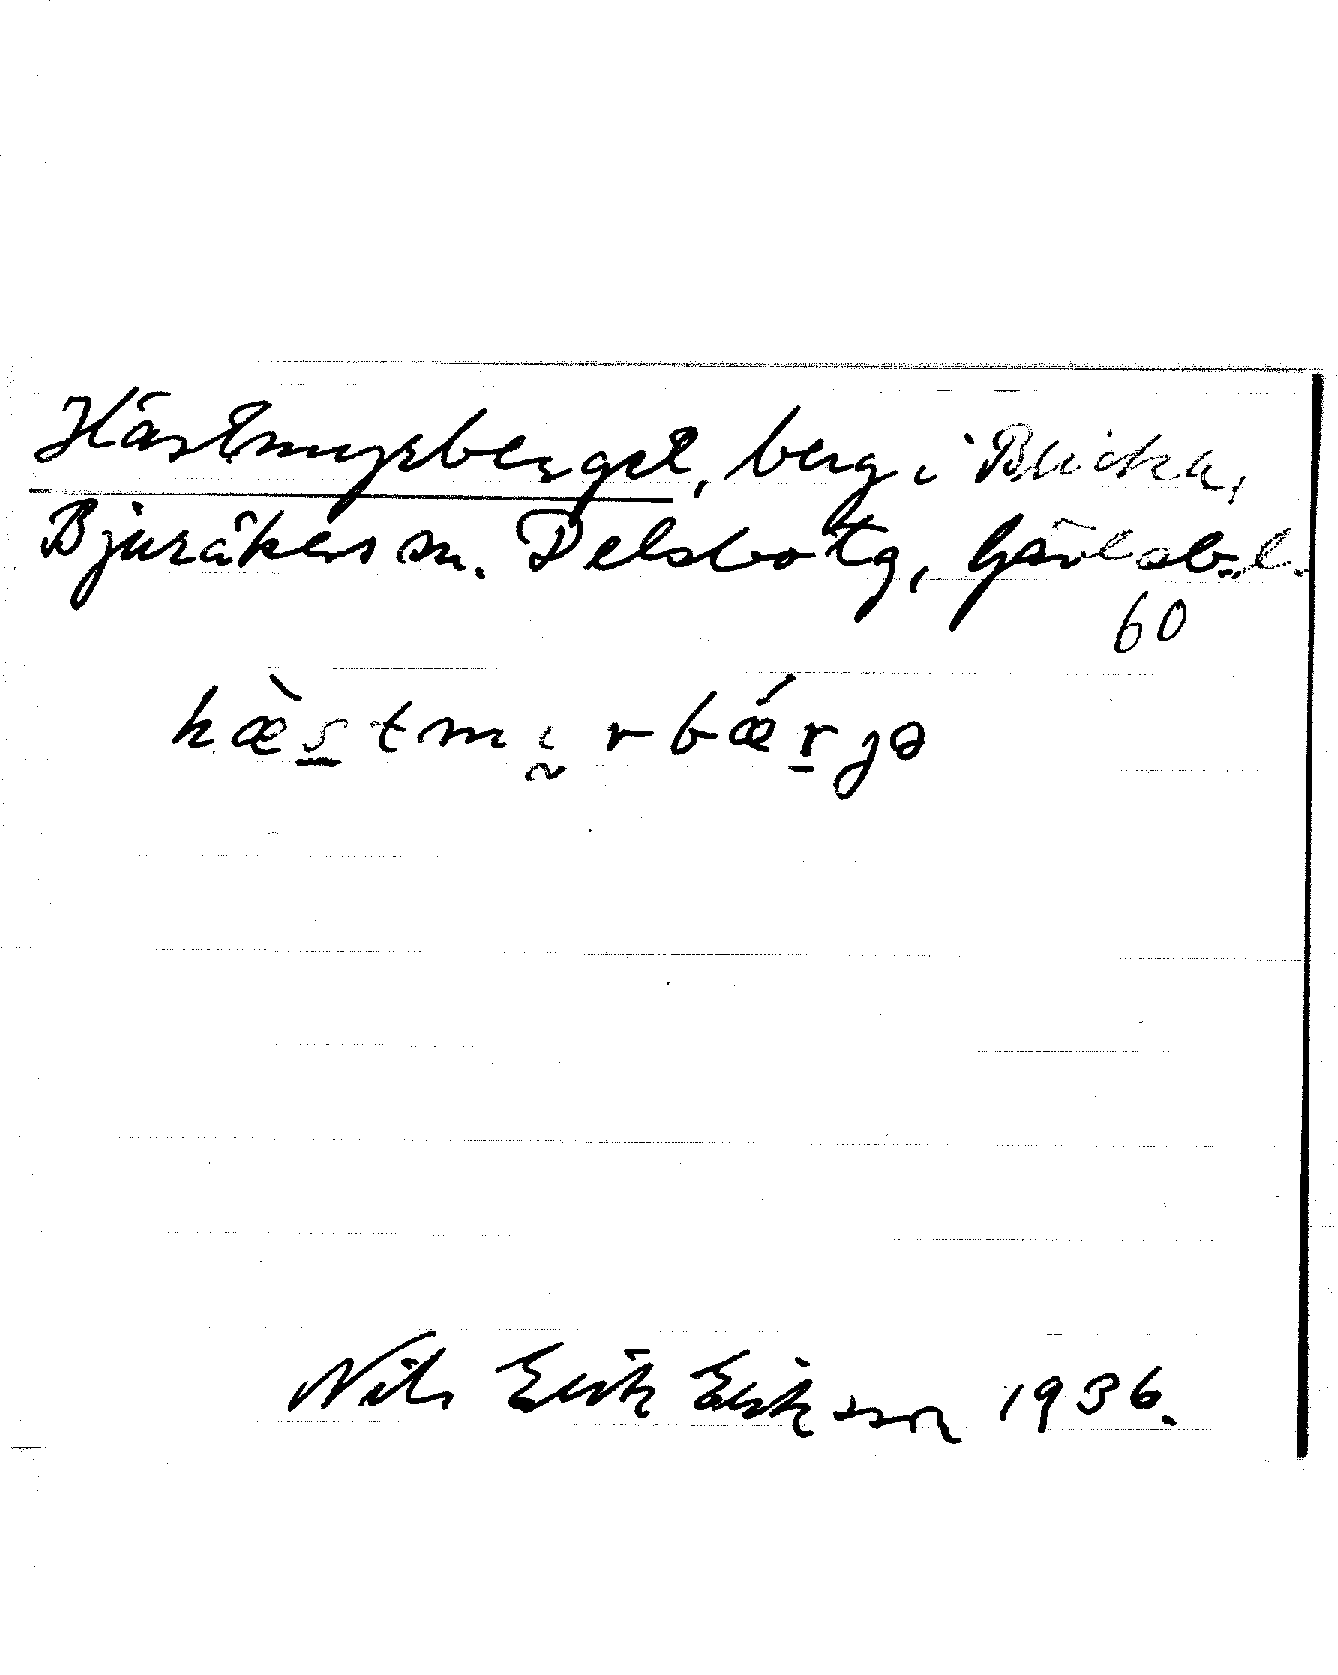 Hästmyrberget, berg i Blicka,
Bjuråkers sn. Delsbo tg, Gävleb. l.
60
hæ̀s̲tmḭrbǽr̲jə
Nils Erik Eriksson 1936.